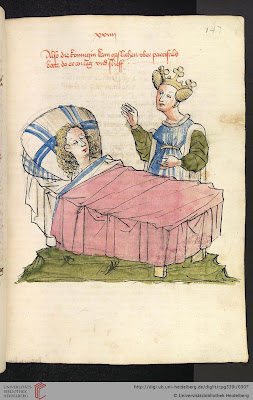 147
Also die konnigin kam geslichen ober parcifals
bette do er an lag vnd slieff
UNIVERSITÄTS-
BIBLIOTHEK
HEIDELBERG
http://digi.ub.uni-heidelberg.de/diglit/cpg339i/0307
© Universitätsbibliothek Heidelberg